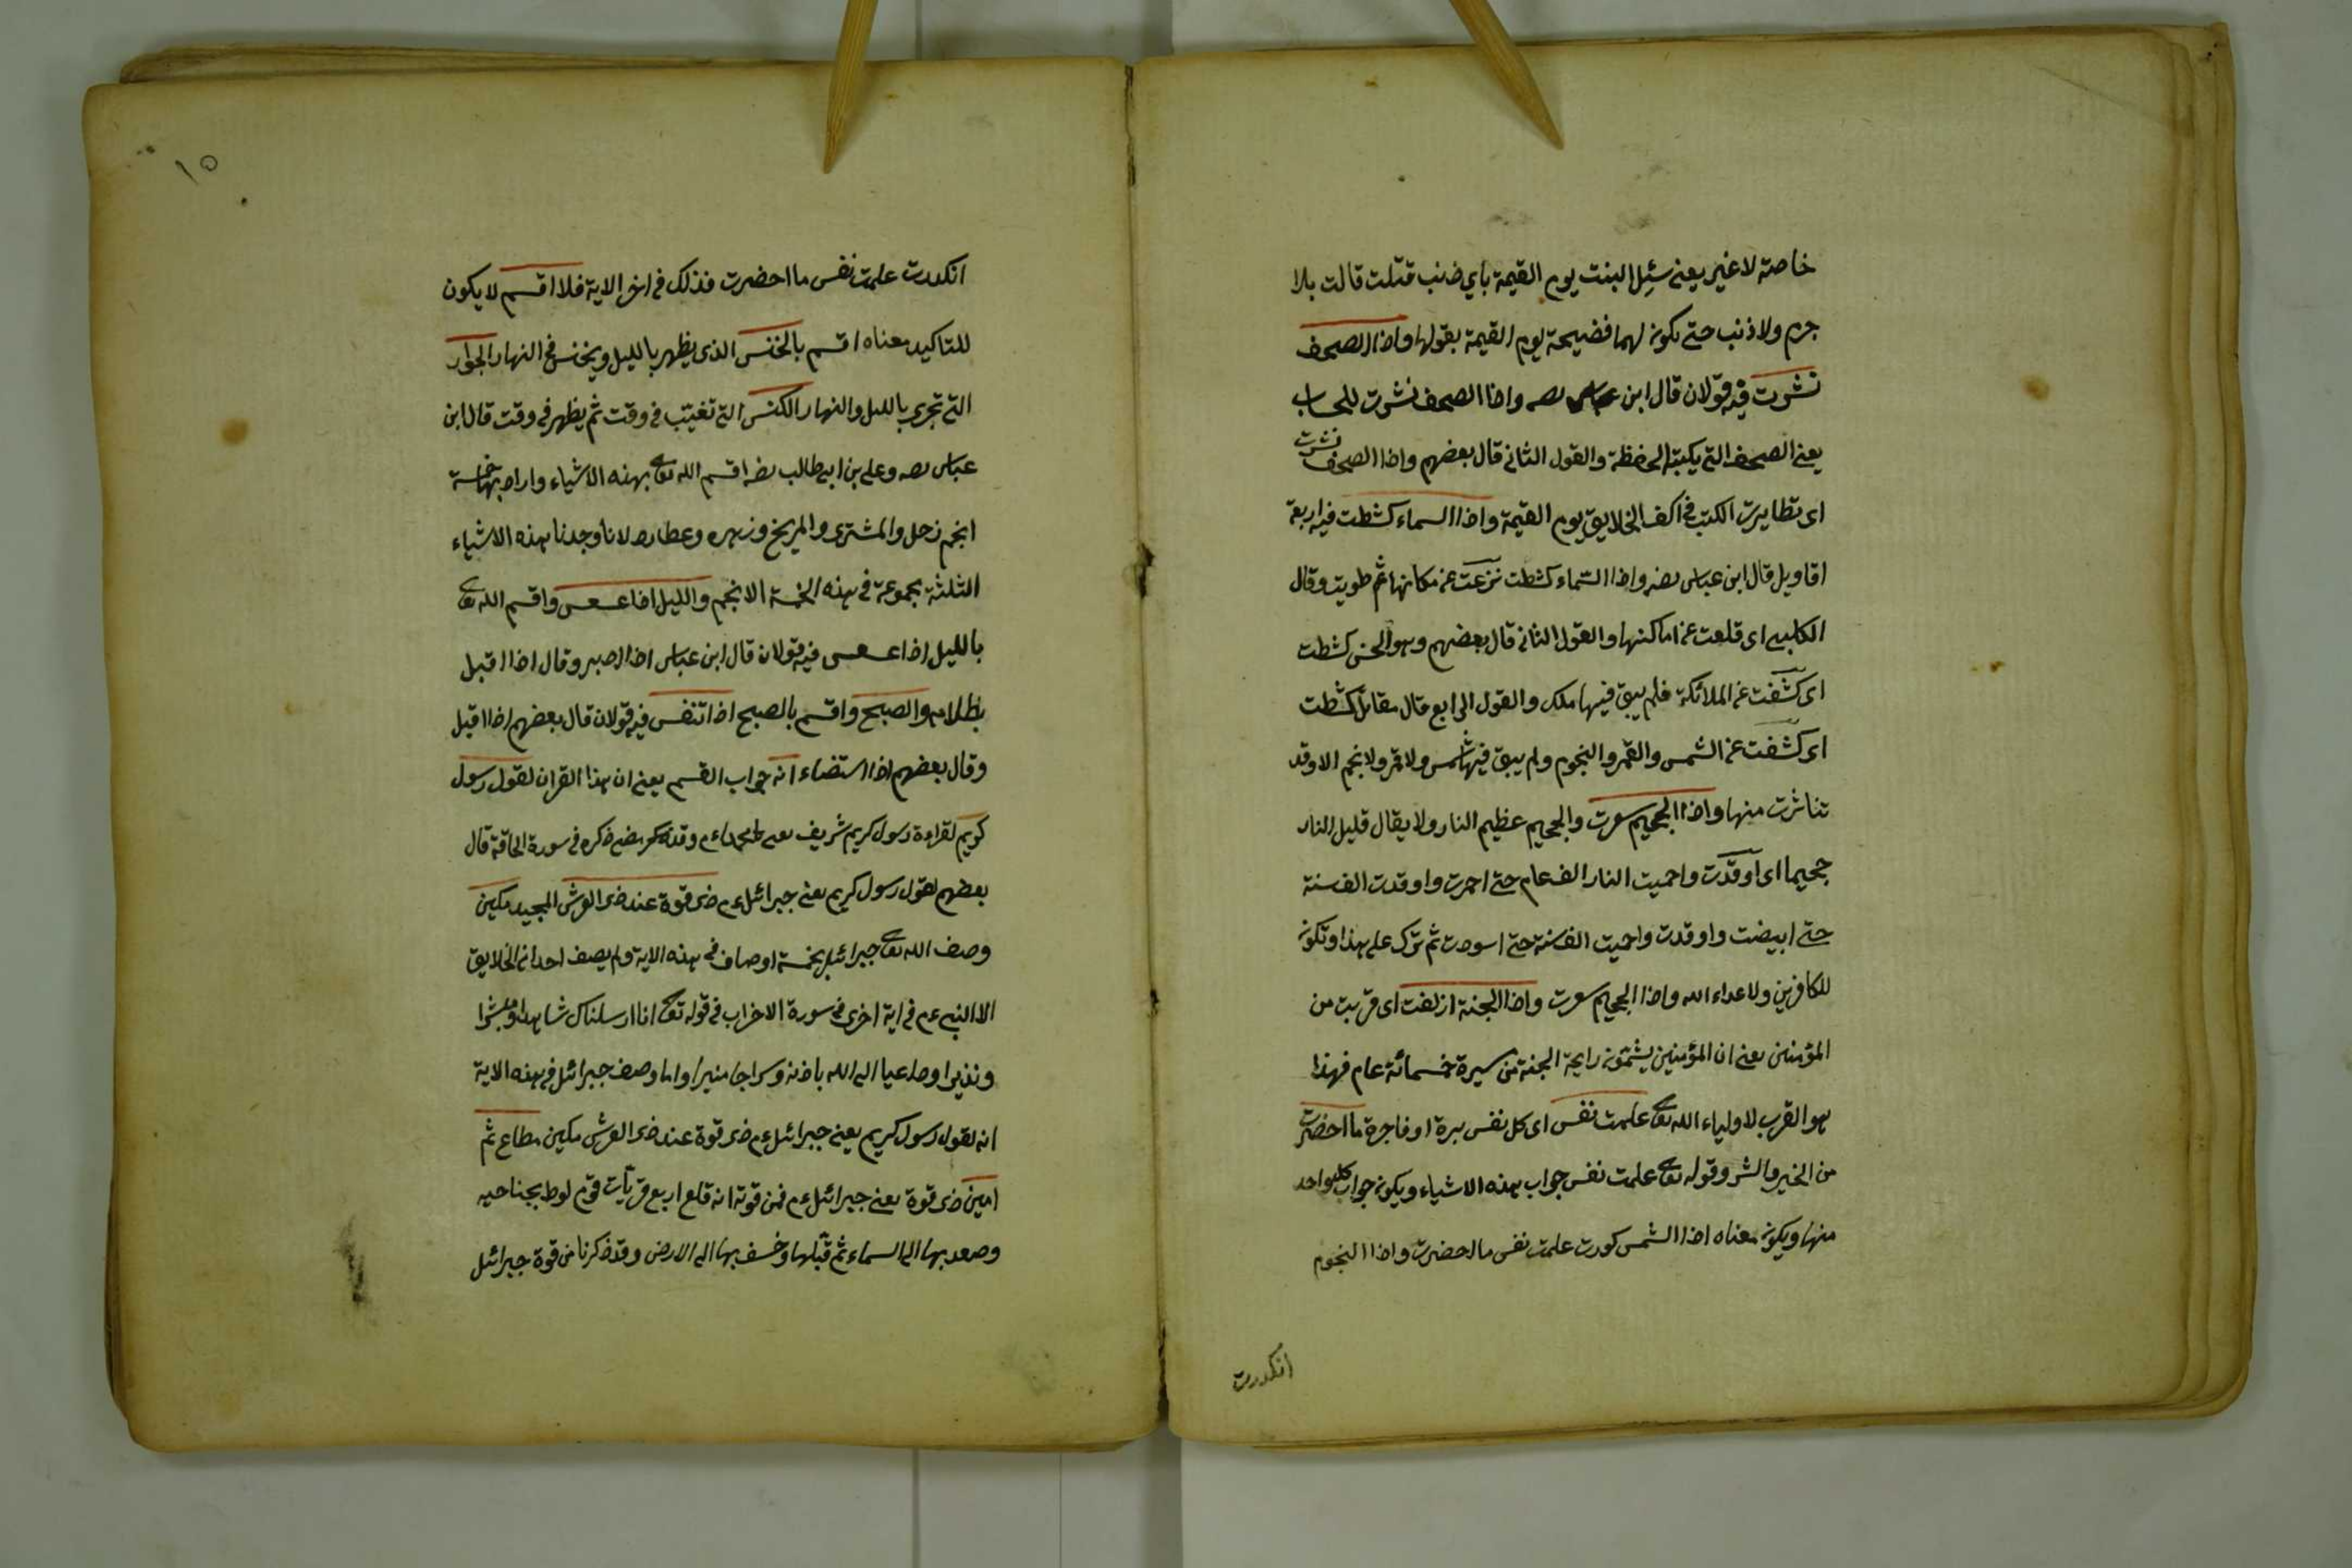 خاصة لا غير يعنى سئل البنت يوم القيمة باي ذنب قتلت قالت بلا
جرم ولا ذنب حتى يكون لهما فضيحة يوم القيمة بقولها واذا الصحف
نشرت فيه قولان قال ابن عباس رضه واذا الصحف نشرت للحساب
يعنى الصحف التى يكتبه الحفظة والقول الثانى قال بعضهم واذا الصحف نشرت
اى تطايرت الكتب فى اكف الخلايق يوم القيمة واذا السماء كشطت فيه اربعة
اقاويل قال ابن عباس رضه واذا السماء كشطت نزعت عن مكانها ثم طويت وقال
الكلبى اى قلعت عن اماكنها والقول الثانى قال بعضهم وهو الحسن كشطت
اى كشفت عن الملائكة فلم يبق فيها ملك والقول الرابع قال مقاتل كشطت
اى كشفت عن الشمس والقمر والنجوم ولم يبق فيها شمس ولا قمر ولا نجم الا وقد
تناثرت منها واذا الجحيم سعرت والجحيم عظيم النار ولا يقال قليل النار
جحيما اى اوقدت واحميت النار الف عام حتى احمرت واوقدت الف سنة
حتى ابيضت واوقدت واحميت الف سنة حتى اسودت ثم ترك على هذا وتكون
للكافرين ولاعداء الله واذا الجحيم سعرت واذا الجنة ازلفت اى قربت من
المؤمنين يعنى ان المؤمنين يشمون رايحة الجنة من سيرة خمسمائة عام فهذا
هو القرب لاولياء الله تعالى علمت نفس اى كل نفس برة او فاجرة ما احضرت
من الخير والشر وقوله تعالى علمت نفس جواب بهذه الاشياء ويكون جواب كل واحد
منها ويكون معناه اذا الشمس كورت علمت نفس ما احضرت واذا النجوم
انكدرت
١٥
انكدرت علمت نفس ما احضرت فذلك فى اخر الاية فلا اقسم لا يكون
للتاكيد معناه اقسم بالخنس الذى يظهر بالليل ويخنس فى النهار الجوار
التى تجرى بالليل والنهار الكنس التى تغيب فى وقت ثم يظهر فى وقت قال ابن
عباس رضه وعلى بن ابى طالب رضه اقسم الله تعالى بهذه الاشياء واراد بها خمسة
انجم زحل والمشترى والمريخ وزهره وعطارد لانا وجدنا هذه الاشياء
الثلثة مجموعة فى هذه الخمسة الانجم والليل اذا عسعس واقسم الله تعالى
بالليل اذا عسعس فيه قولان قال ابن عباس اذا ادبر وقال اذا اقبل
بظلامه والصبح واقسم بالصبح اذا تنفس فيه قولان قال بعضهم اذا اقبل
وقال بعضهم اذا استضاء انه جواب القسم يعنى ان هذا القران لقول رسول
كريم لقراءة رسول كريم شريف يعنى وقد مضى ذكره فى سورة الحاقة قال
بعضهم لقول رسول كريم يعنى جبرائيل ءم ذى قوة عند ذى العرش المجيد مكين
وصف الله تعالى جبرائيل بخمسة اوصاف فى هذه الاية ولم يصف احدا من الخلايق
الا النبى عم فى اية اخرى فى سورة الاحزاب فى قوله تعالى انا ارسلناك شاهدا ومبشرا
ونذيرا وداعيا الى الله باذنه وسراجا منيرا واما وصف جبرائيل فى هذه الاية
انه لقول رسول كريم يعنى جبرائيل ءم ذى قوة عند ذى العرش مكين مطاع ثم
امين ذى قوة يعنى جبرائيل ءم فمن قوته انه قلع اربع قريات قوم لوط بجناحيه
وصعد بها الى السماء ثم قلبها وخسف بها الى الارض وقد ذكرنا من قوة جبرائيل